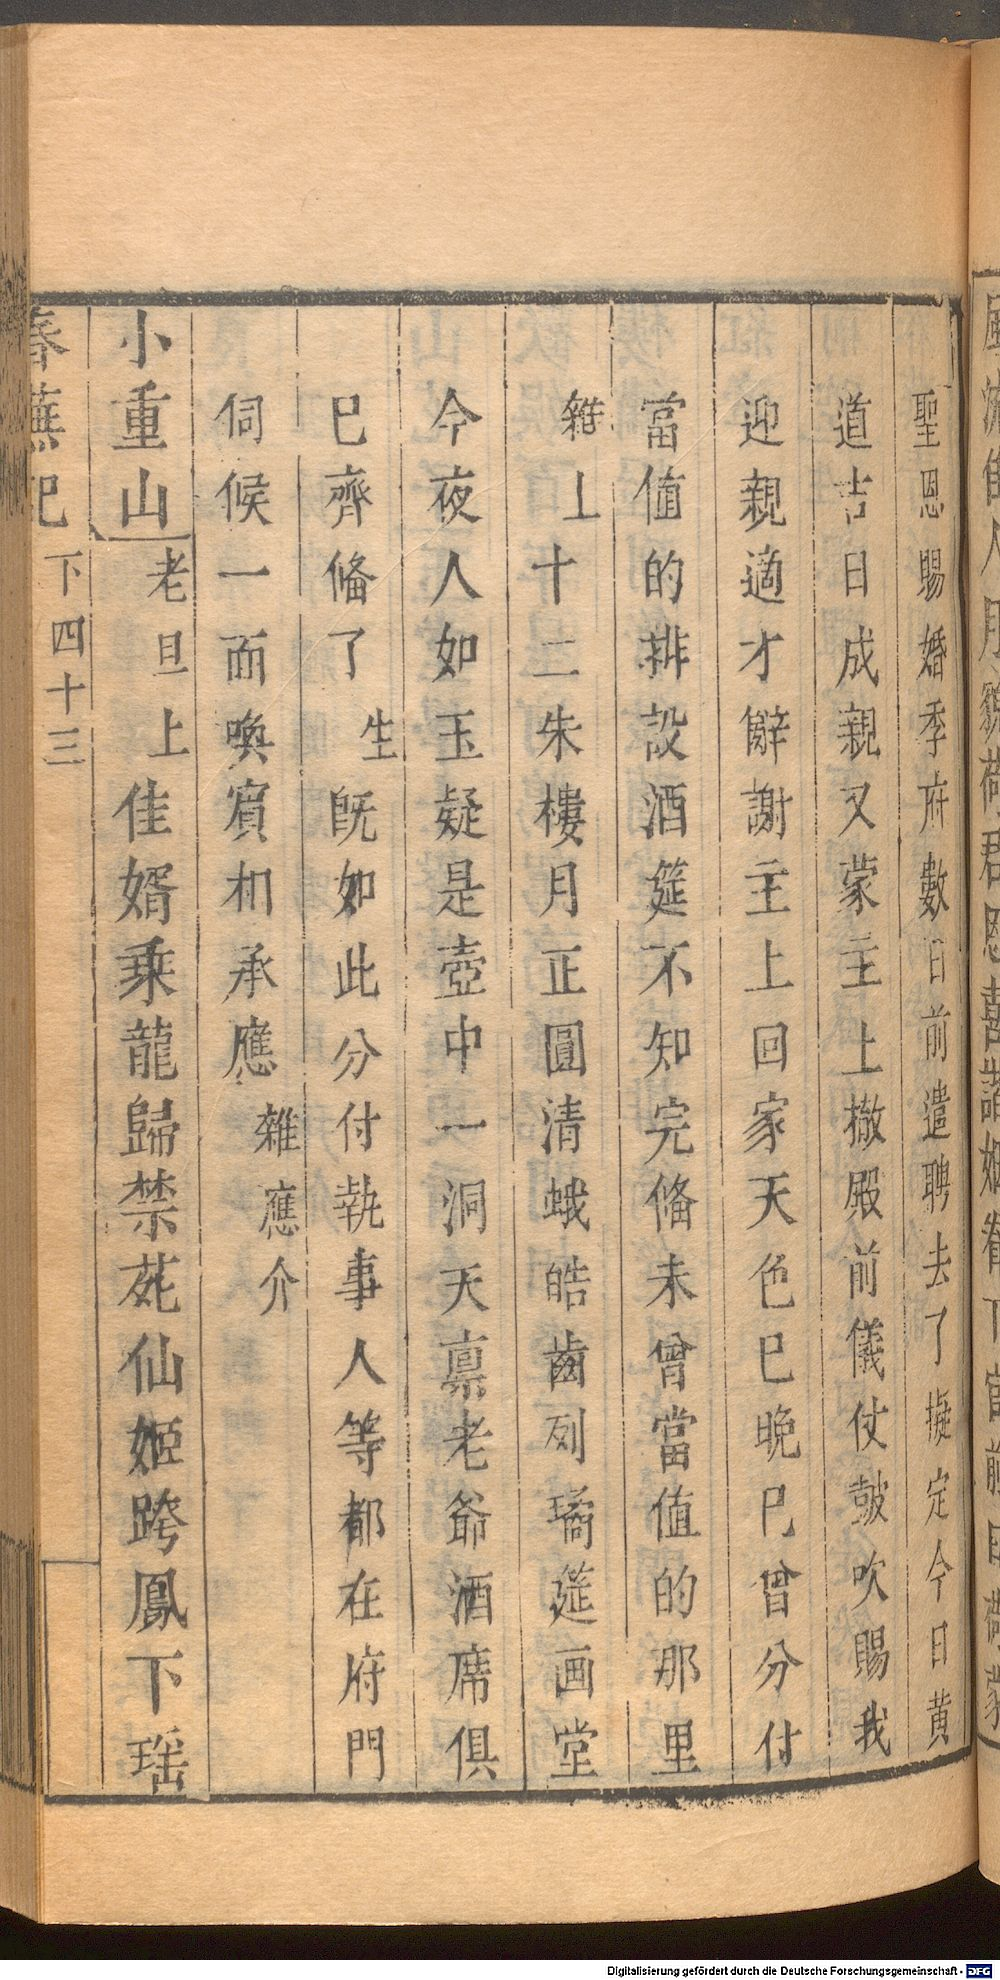 聖恩賜婚季府數日前遣聘去了擬定今日黃
道吉日成親又蒙主上撤殿前儀仗鼓吹賜我
迎親適才辭謝主上回家天色已晚已曾分付
當值的排設酒筵不知完俻未曾當值的那里
雜上十二朱樓月正圓清蛾皓齒列瑤筵画堂
今夜人如玉疑是壺中一洞天禀老爺酒席俱
已齊俻了生旣如此分付執事人等都在府門
伺候一面喚賓相承應雜應介
小重山老旦上佳婿乗龍歸禁苑仙姬跨鳳下瑶
春蕪記 下四十三
Digitalisierung gefördert durch die Deutsche Forschungsgemeinschaft - DFG